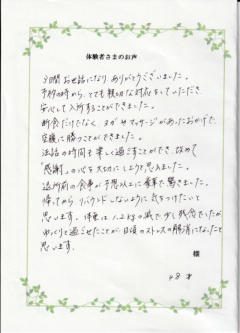 体験者さまのお声
3日間お世話になり、ありがとうございました。
予約の時から、とても親切な対応をしていただき、
安心して入所することができました。
断食だけでなく、ヨガやマッサージがあったおかげで、
空腹に勝つことができました。
法話の時間も楽しく過ごすことができ、改めて
「感謝」の心を大切にしようと思えました。
退所前の食事が予想以上に豪華で驚きました。
帰ってからリバウンドしないように気をつけたいと
思います。体重は1.2kgの減で、少し残念でしたが
ゆっくりと過ごせたことが、日頃のストレスの解消になったと
思います。
様
48才